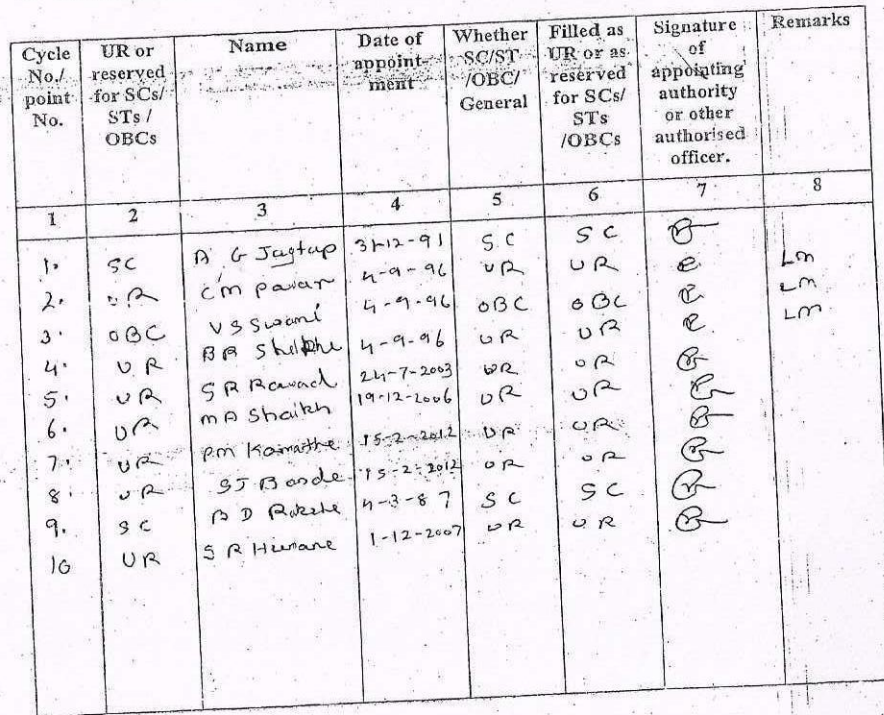 Cycle No./ point No. UR or reserved for SCs/ STs / OBCs Name Date of appoint- ment Whether SC/ST /OBC/ General Filled as UR or as reserved for SCs/ STs /OBCs Signature of appointing authority or other authorised officer. Remarks
1 2 3 4 5 6 7 8
1. SC A G Jagtap 31-12-91 SC SC
2. UR C M Pawar 4-9-96 UR UR LM
3. OBC V S Swami 4-9-96 OBC OBC LM
4. UR B R 4-9-96 UR UR LM
5. UR S R 24-7-2003 UR UR
6. UR M A Shaikh 19-12-2006 UR UR
7. UR P.M Kamathe 15-2-2012 UR UR
8. UR S J Bande 15-2-2012 UR UR
9. SC B D 4-3-87 SC SC
10 UR S R 1-12-2007 UR UR